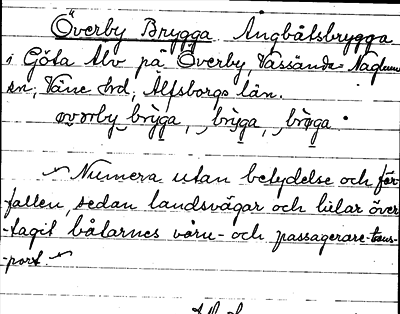 Överby Brygga Ångbåtsbrygga
i Göta Älv på Överby, Vassända-Naglum
sn, Väne hd, Älfsborgs län.
brìga, brìga
"Numera utan betydelse och för-
fallen, sedan landsvägar och bilar över
-tagit båtarnes varu- och passagerare-trans-
-port."